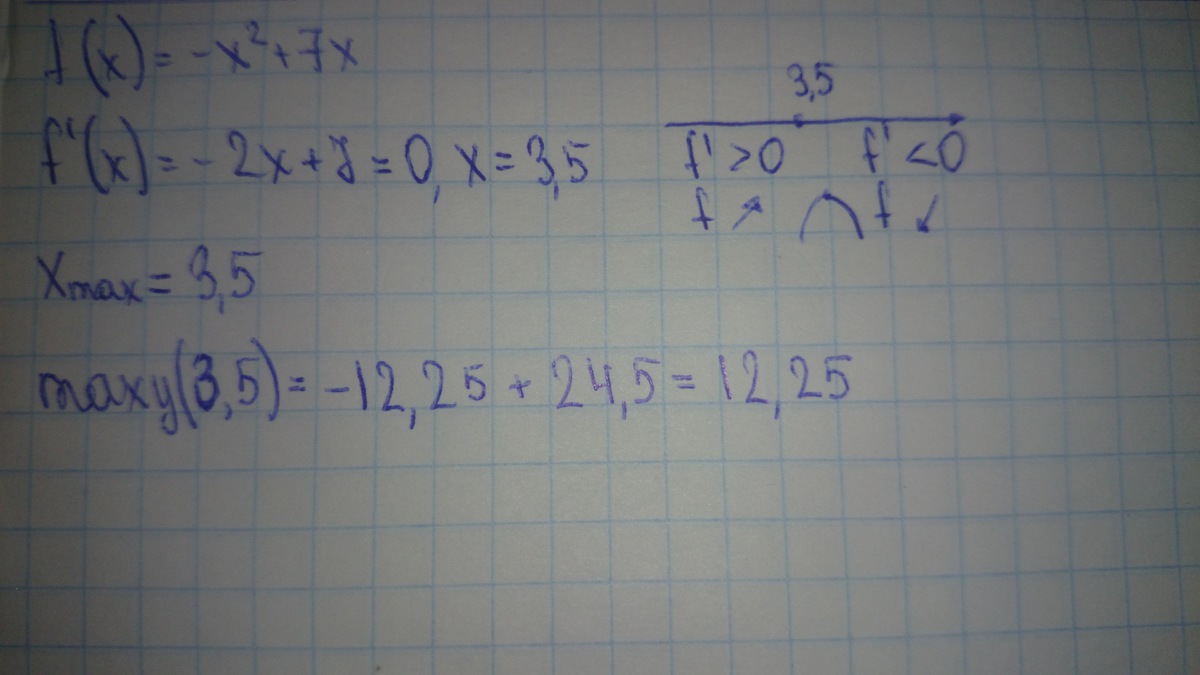 f(x) = -x² + 7x
3,5
f'(x) = -2x + 7 = 0, x = 3,5
f' > 0 f' < 0
f ↗ f ↙
xmax = 3,5
maxy(3,5) = -12,25 + 24,5 = 12,25